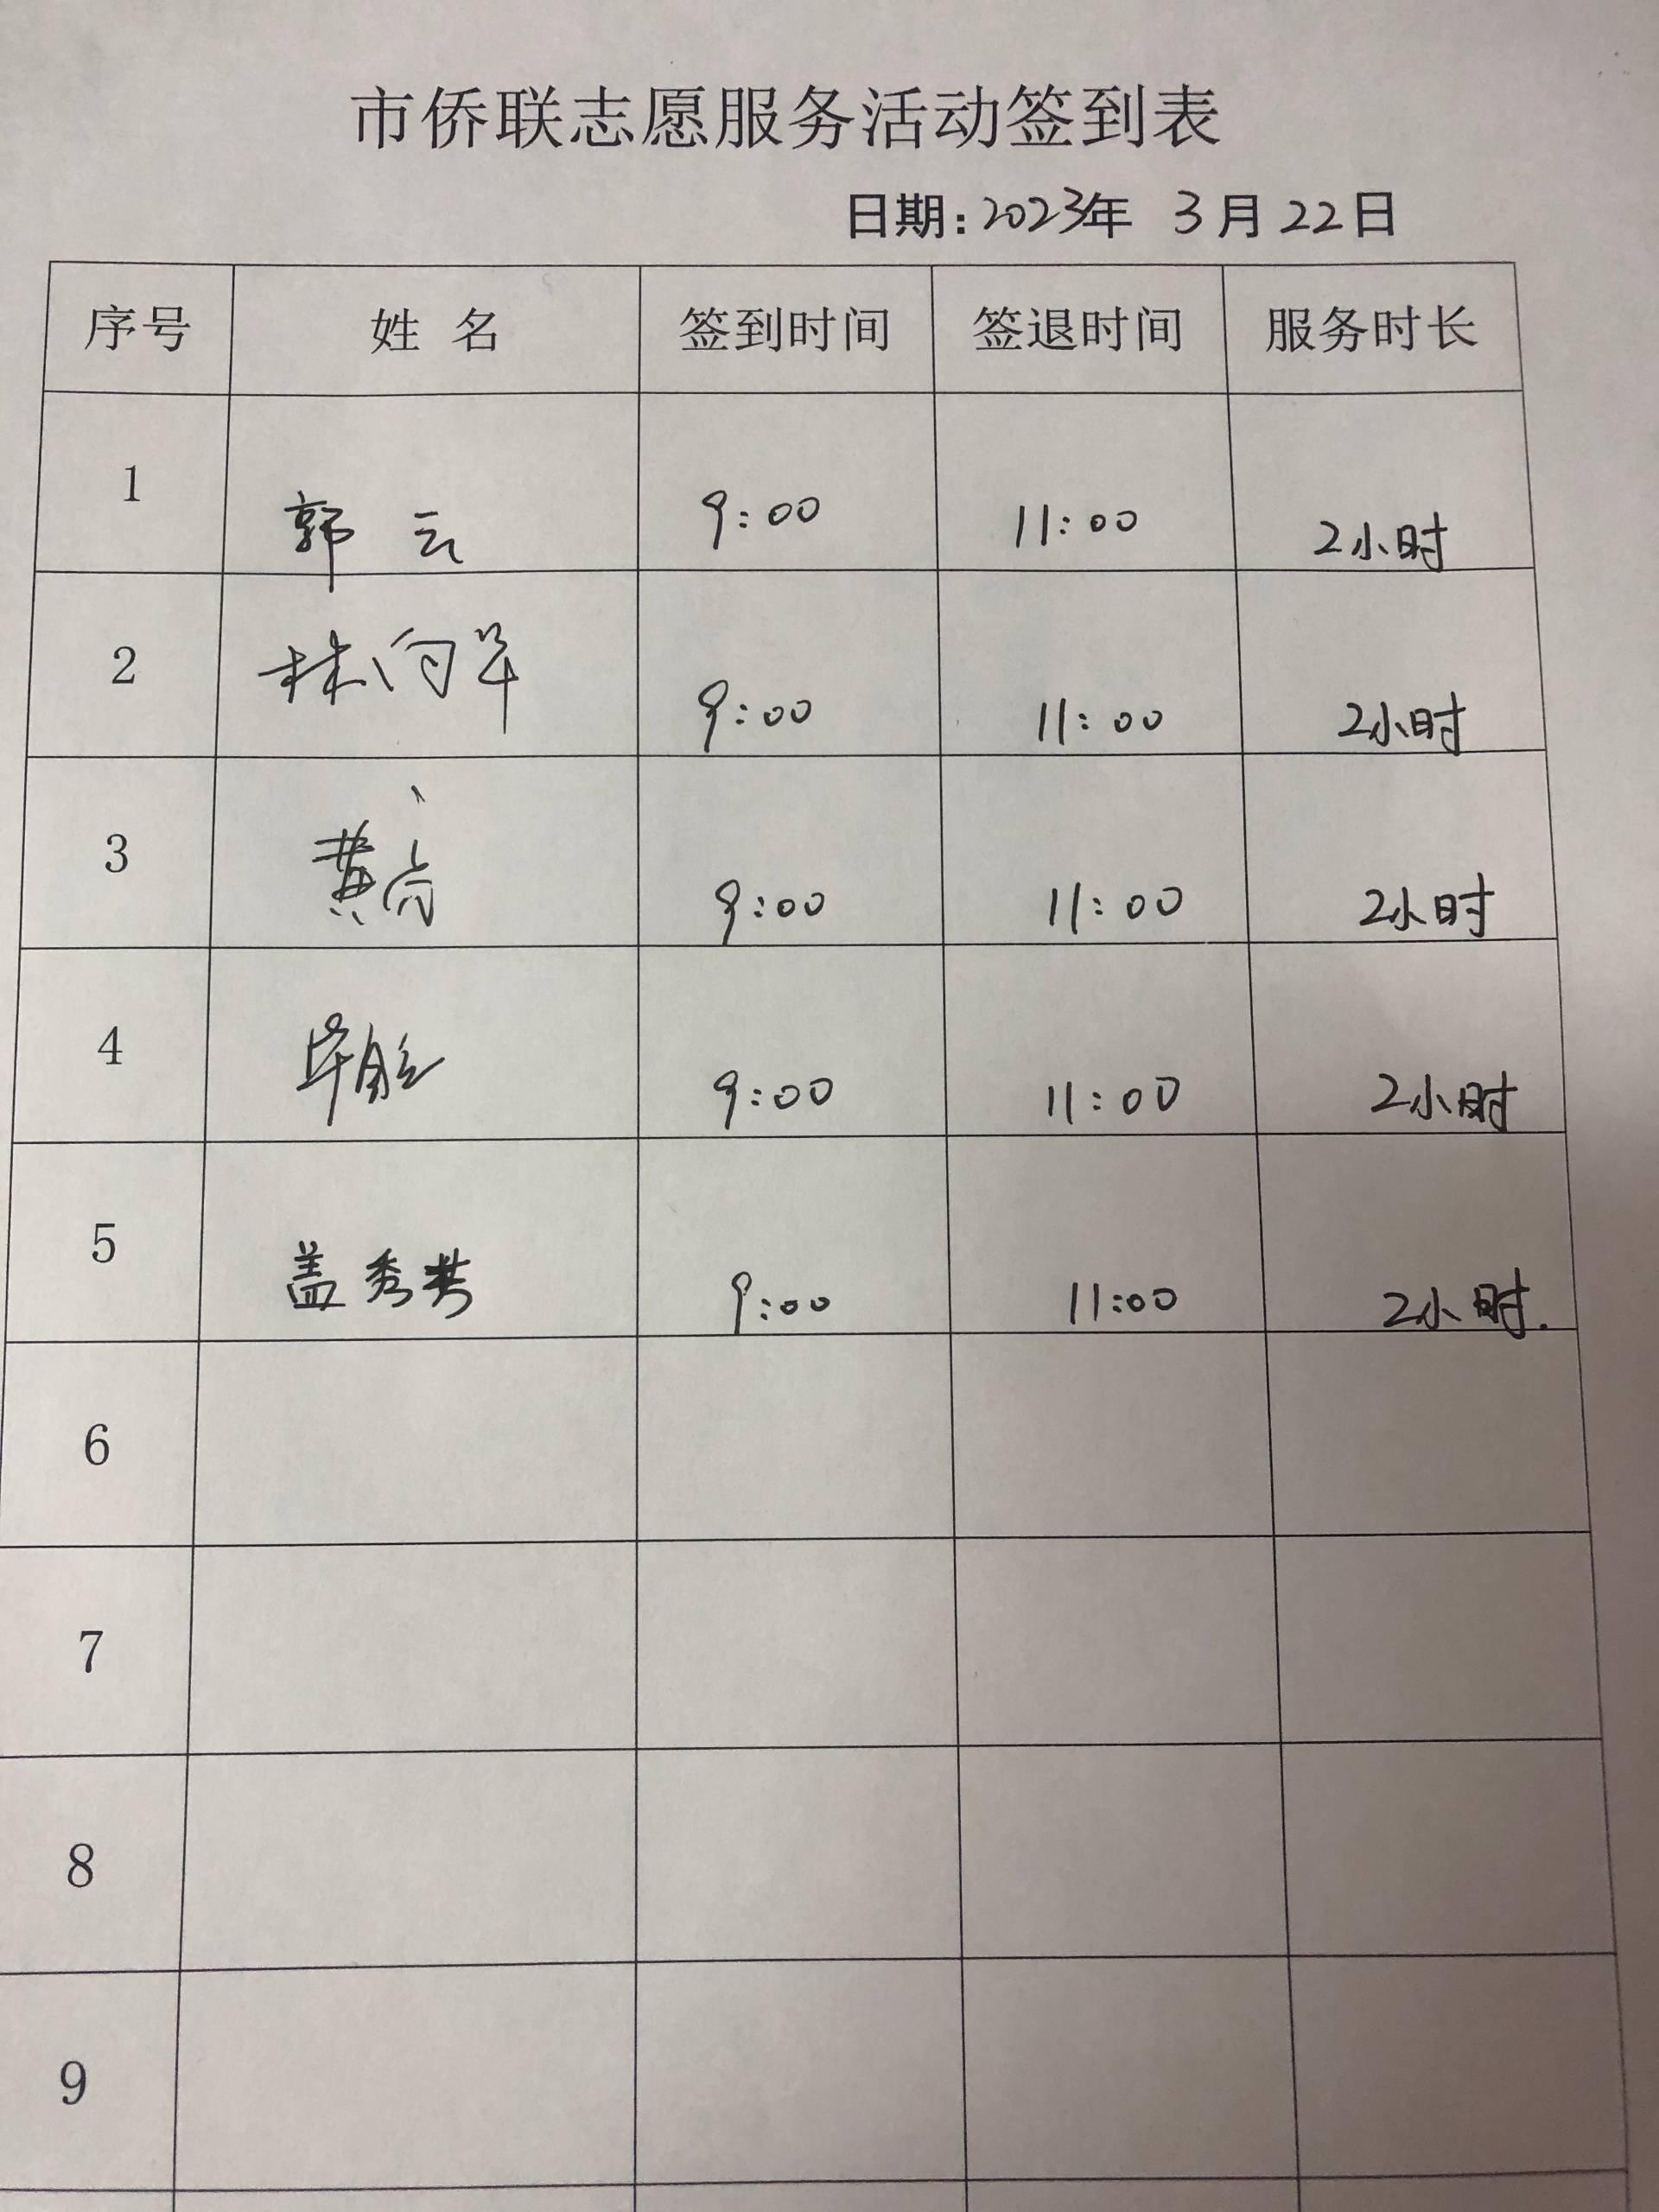 市侨联志愿服务活动签到表
日期:2023年 3月22日
序号 姓 名 签到时间 签退时间 服务时长
1 郭 云 9:00 11:00 2小时
2 林 9:00 11:00 2小时
3 黄 9:00 11:00 2小时
4 毕 9:00 11:00 2小时
5 盖秀 9:00 11:00 2小时.
6
7
8
9